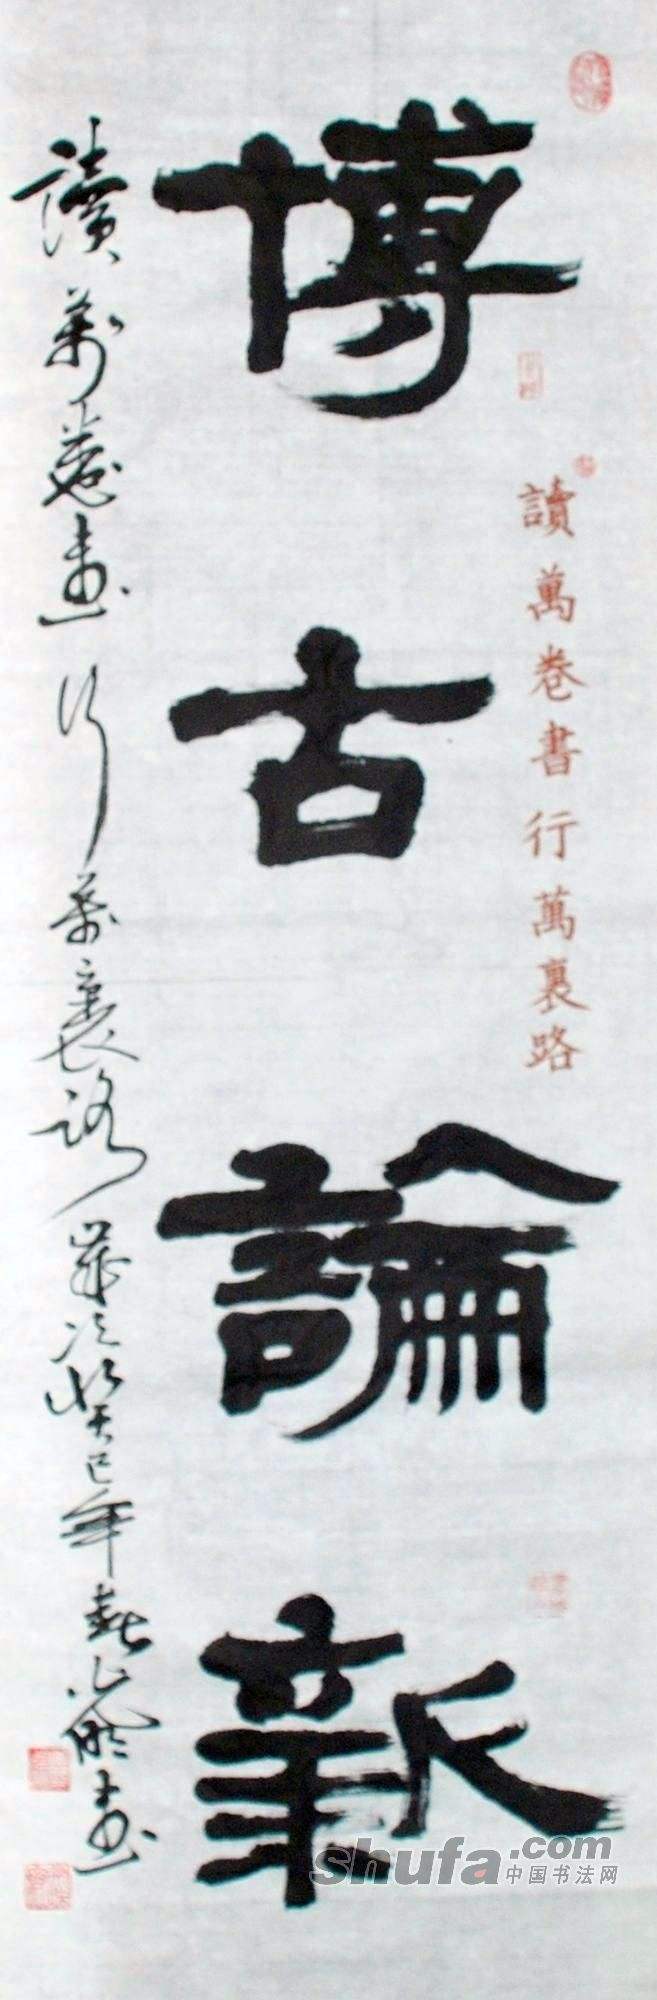 博古論新
讀萬卷書行萬裏路
讀萬卷書行萬裏路歲次癸巳年
書
shufa.com
中国书法网